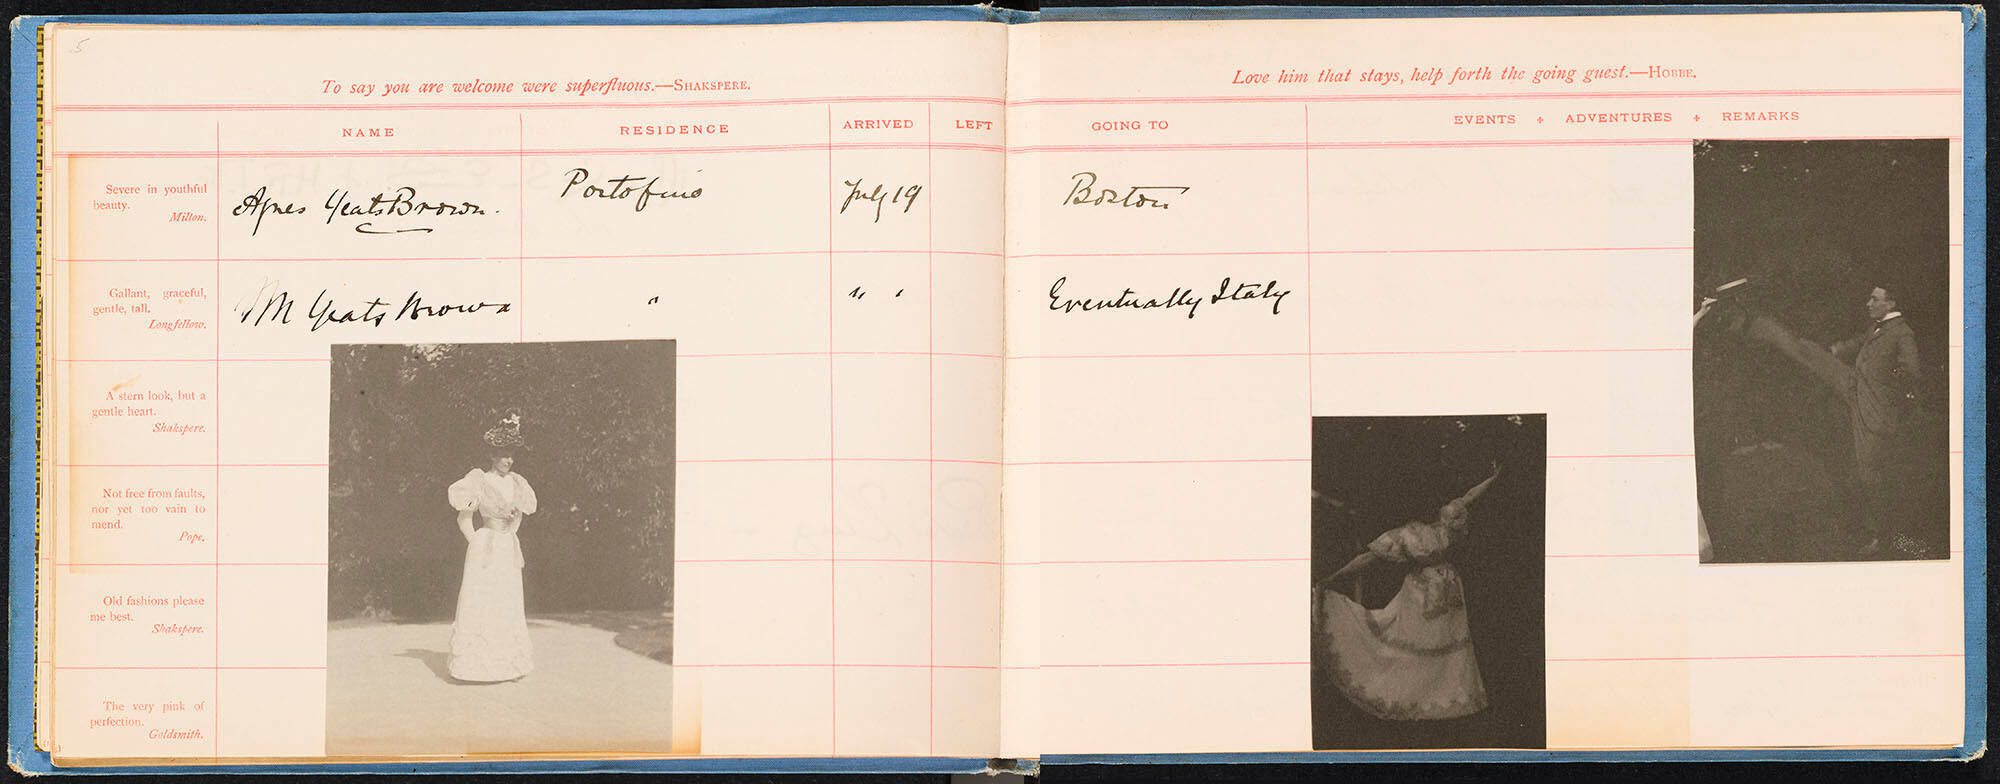 5
To say you are welcome were superfluous.—SHAKSPERE.
NAME RESIDENCE ARRIVED LEFT
Severe in youthful
beauty.
Milton.
Agnes Yeats Brown. Portofino July 19
Gallant, graceful,
gentle, tall.
Longfellow.
M Yeats Brown " " "
A stern look, but a
gentle heart.
Shakspere.
Not free from faults,
nor yet too vain to
mend.
Pope.
Old fashions please
me best.
Shakspere.
The very pink of
perfection.
Goldsmith.
Love him that stays, help forth the going guest.—HOBBE.
GOING TO EVENTS + ADVENTURES + REMARKS
Boston
Eventually Italy